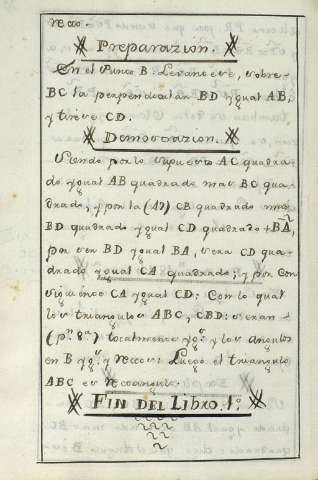 recto.
Preparazion.
En el Punto B. Levantese, sobre
BC la perpendicular BD ygual AB,
y tirese CD.
Demostrazion.
Siendo por lo supuesto AC quadra-
do ygual AB quadrado mas BC qua-
drado, y por la (47) CB quadrado mas
BD quadrado ygual CD quadrado + BA,
por ser BD ygual BA, sera CD qua-
drado ygual CA quadrado; y por con
siguiente CA ygual CD: Con lo qual
los triangulos ABC, CBD: seran
(pr. 8ª) totalmente ygs. y los angulos
en B ygs. y rectos: Luego el triangulo
ABC es rectangulo.
FIN DEL LIBRO. 1º